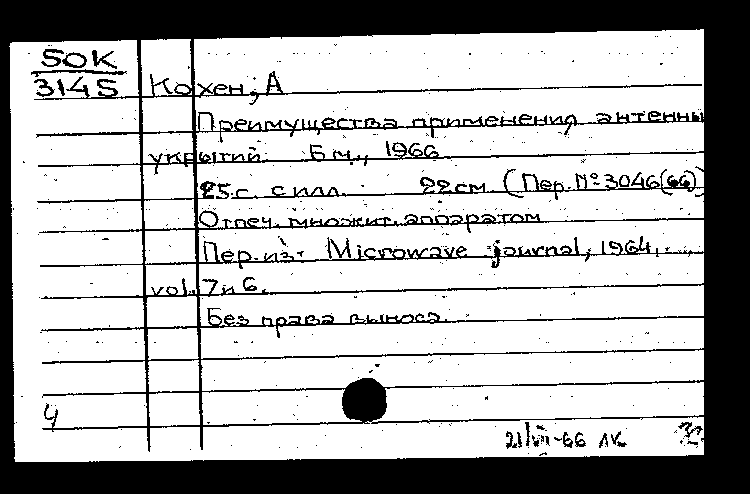 50К
3145
Кохен, А
Преимущества применения антенны
укрытий. Б м., 1966
25 с. с илл. 22 см. (Пер. № 3046(66)
Отпеч. множит. аппаратом
Пер. из: Microwave journal, 1964,
vol. 7 и 6.
Без права выноса.
4
21/VII-66 ЛК